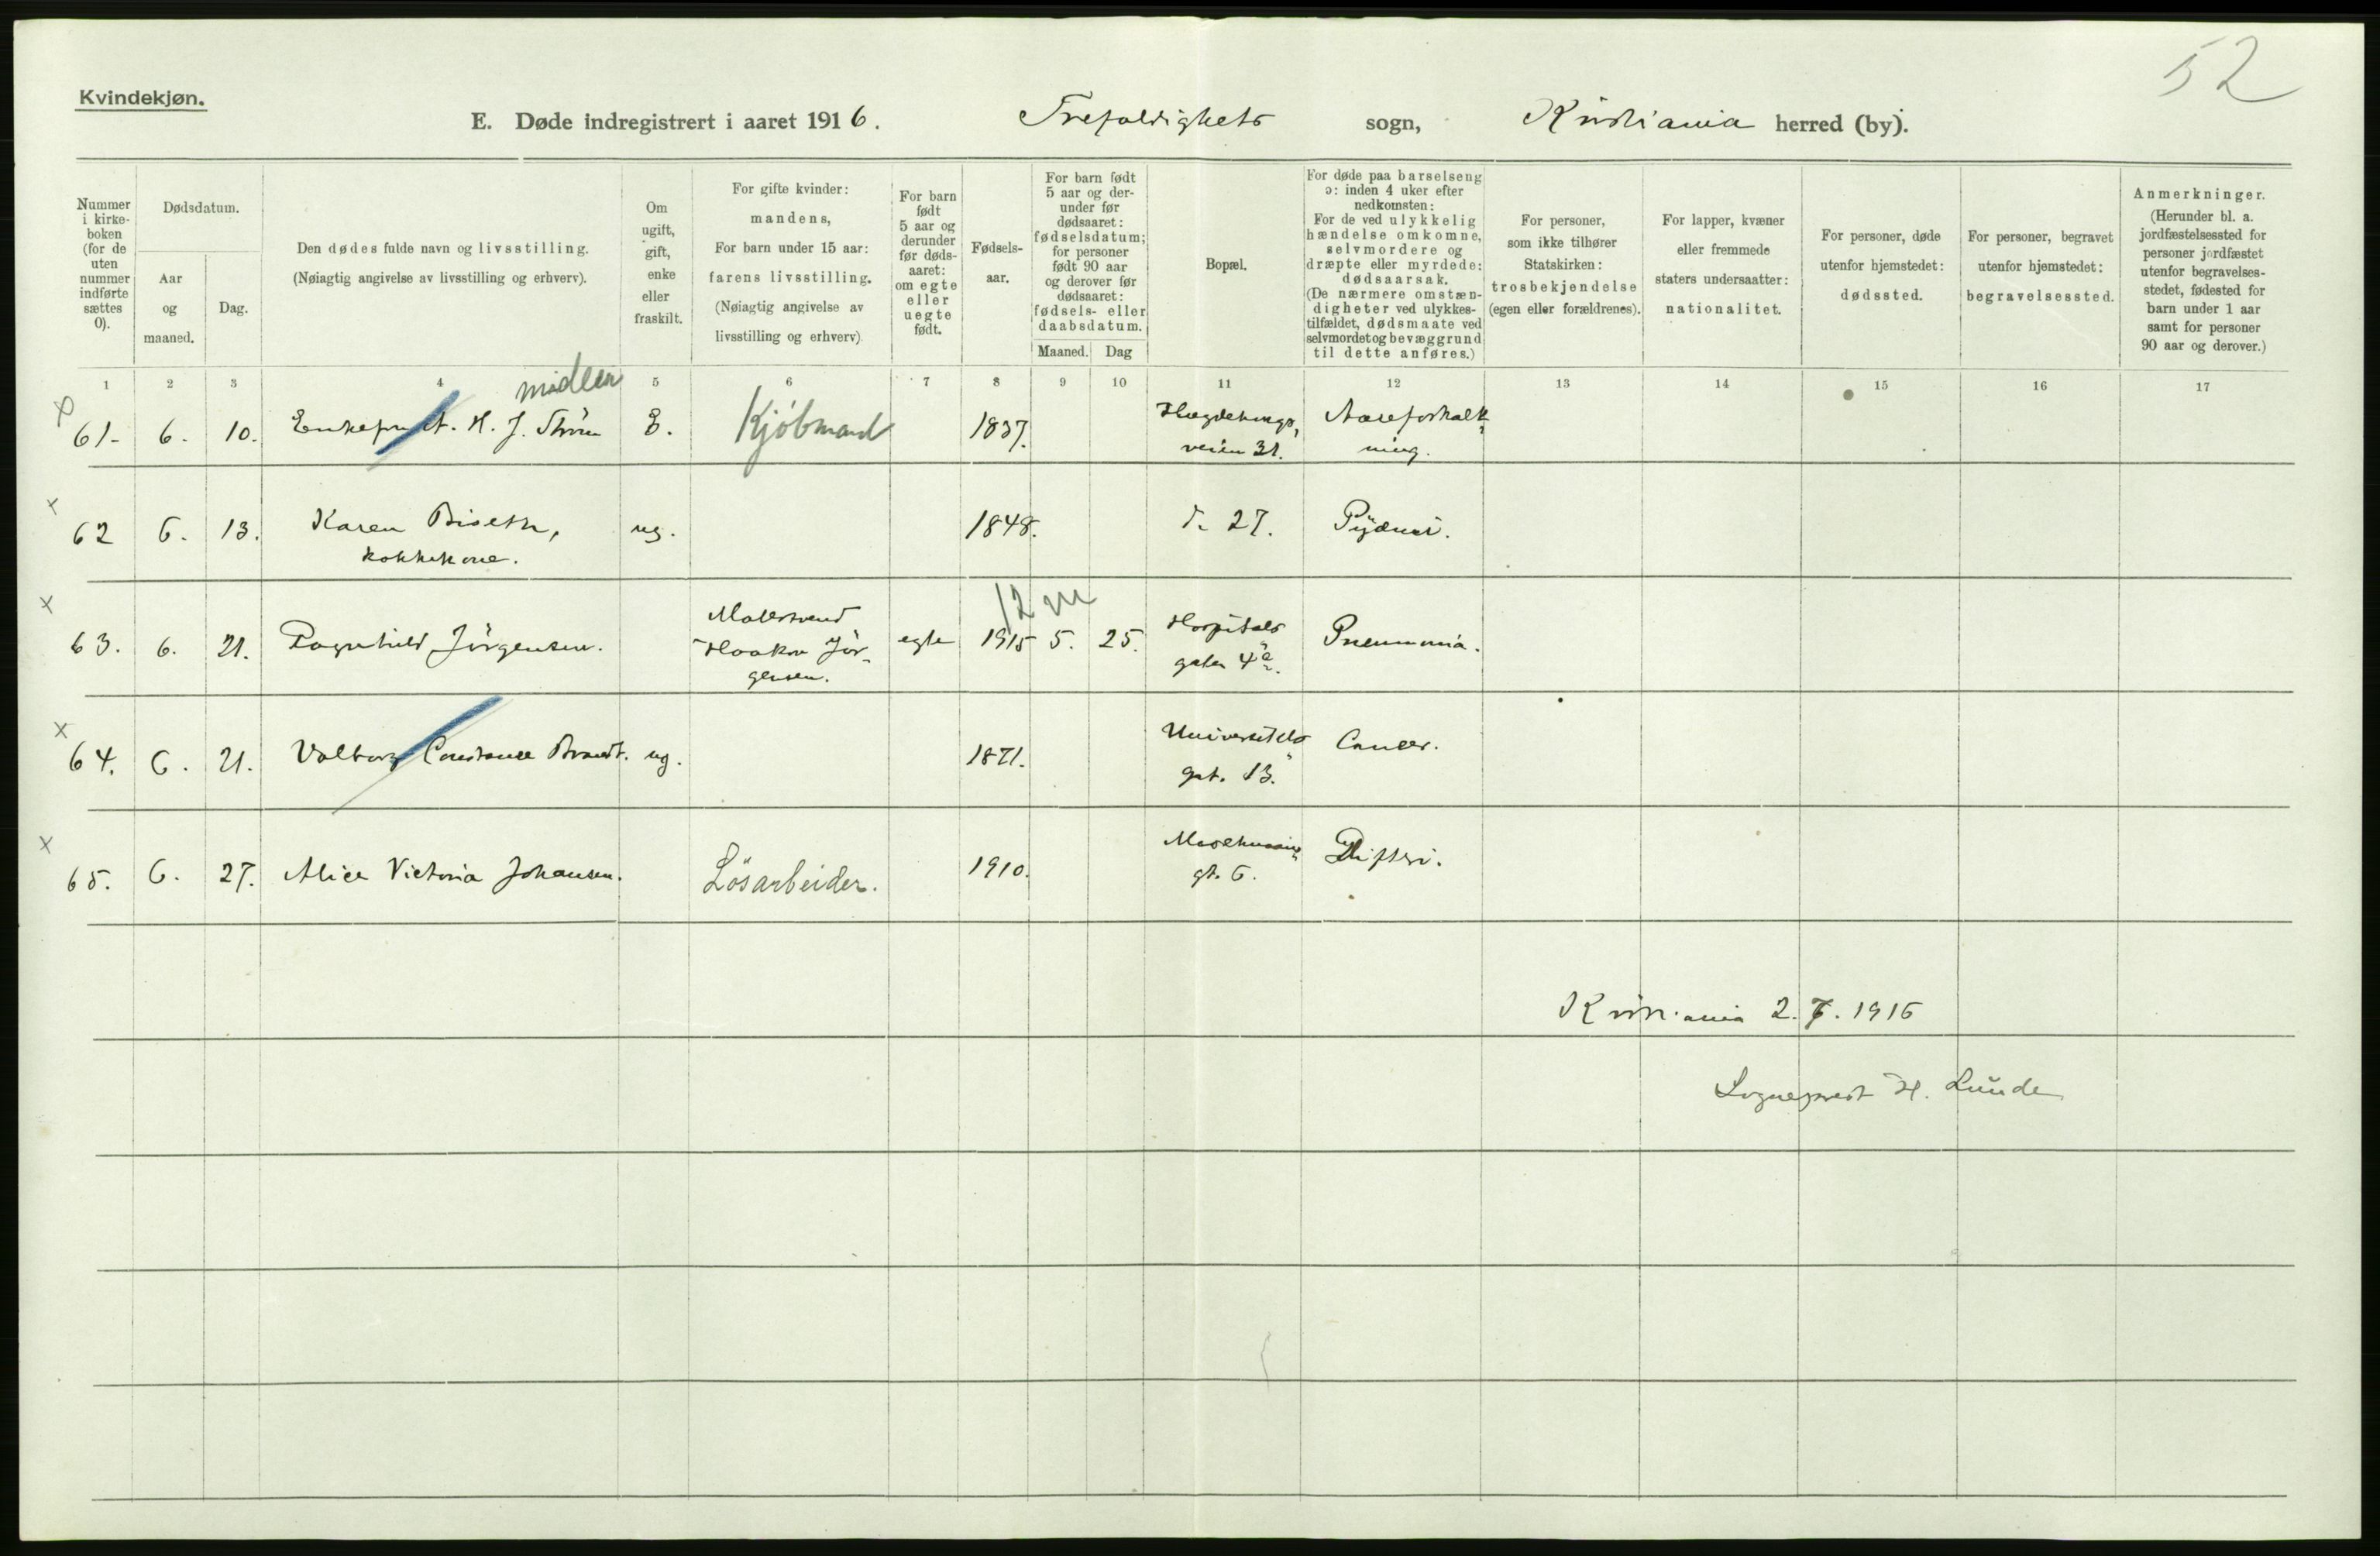 52
Kvindekjøn.
E. Døde indregistrert i aaret 1916. Trefoldighets sogn, Kristiania herred (by).
Nummer
i kirke-
boken
(for de
uten
nummer
indførte
sættes
0).
Dødsdatum.
Aar
og
maaned.
Dag.
Den dødes fulde navn og livsstilling.
(Nøiagtig angivelse av livsstilling og erhverv).
Om
ugift,
gift,
enke
eller
fraskilt.
For gifte kvinder:
mandens,
For barn under 15 aar:
farens livsstilling.
(Nøiagtig angivelse av
livsstilling og erhverv)
For barn
født
5 aar og
derunder
før døds-
aaret:
om egte
eller
uegte
født.
Fødsels-
aar.
For barn født
5 aar og der-
under før
dødsaaret:
fødselsdatum;
for personer
født 90 aar
og derover før
dødsaaret:
fødsels- eller
daabsdatum.
Maaned. Dag
Bopæl.
For døde paa barselseng
ɔ: inden 4 uker efter
nedkomsten:
For de ved ulykkelig
hændelse omkomne,
selvmordere og
dræpte eller myrdede:
dødsaarsak.
(De nærmere omstæn-
digheter ved ulykkes-
tilfældet, dødsmaate ved
selvmordet og bevæggrund
til dette anføres.)
For personer,
som ikke tilhører
Statskirken:
trosbekjendelse
(egen eller forældrenes).
For lapper, kvæner
eller fremmede
staters undersaatter:
nationalitet.
For personer, døde
utenfor hjemstedet:
dødssted.
For personer, begravet
utenfor hjemstedet:
begravelsessted.
Anmerkninger.
(Herunder bl. a.
jordfæstelsessted for
personer jordfæstet
utenfor begravelses-
stedet, fødested for
barn under 1 aar
samt for personer
90 aar og derover.)
1 2 3 4 5 6 7 8 9 10 11 12 13 14 15 16 17
midler
61. 6. 10. Enkefru H. J. E. Kjöbmand 1837. Hægdehaugs-
veien 31.
Aareforkalk-
ning.
62 6. 13. Karen Biseth,
kokkekone.
ug. 1848. d. 27. Pyämi.
12 m
63. 6. 21. Ragnhild Jörgensen. Malersvend
Haakon Jör-
gensen.
egte 1915 5. 25. Hospitals
gaten 4a.
Pneumonia.
64. 6. 21. Valborg Constance Brandt. ug. 1871. Universitets
gat. 13.
Cancer.
65. 6. 27. Alice Victoria Johansen. Lösarbeider. 1910.
gt. 6.
Difteri.
Kristiania 2.7.1916
Sogneprest H. Lunde